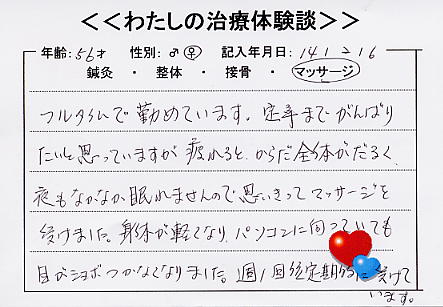 <<わたしの治療体験談>>
年齢：56才　性別：♂ ♀　記入年月日：14 1 2 16
鍼灸 ・ 整体 ・ 接骨 ・ マッサージ
フルタイムで勤めています。定年までがんばり
たいと思っていますが疲れると、からだ全体がだるく、
夜もなかなか眠れませんので思いきってマッサージを
受けました。身体が軽くなり、パソコンに向っていても
目がショボつかなくなりました。週1回位定期的に受けて
います。